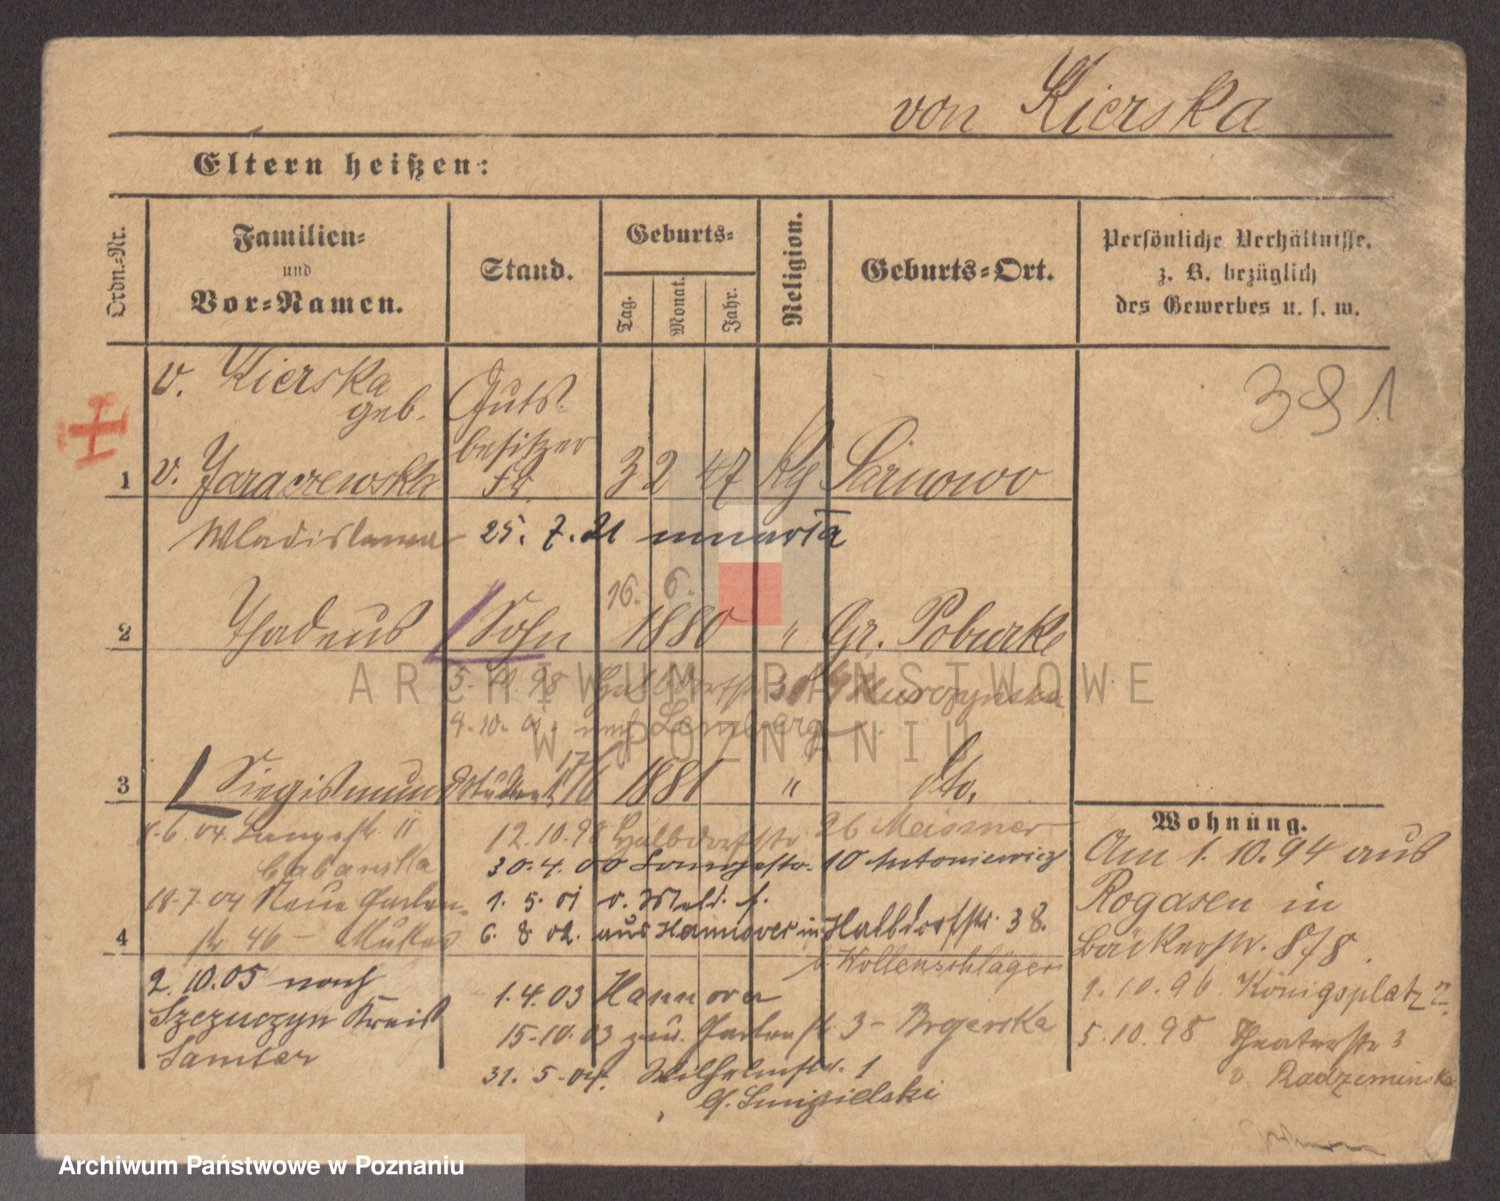 von Kierska
Eltern heißen:
Ordn.-Nr.
Familien-
und
Vor-Namen.
Stand.
Geburts-
Tag.
Monat.
Jahr.
Religion.
Geburts-Ort.
Persönliche Verhältnisse,
z. B. bezüglich
des Gewerbes u. s. w.
v. Kierska
geb.
1 v. Jaraczewska
Gutsbesitzer
3 2 47 Sarnowo
381
Wladislawa 25. 7. 21 umarła
16. 6.
2 Thadeus Sohn 1880 " Gr. Poburke
5. 98 Halbdorfstr.
4.10. nach Lemberg
17/6
3 Siegismund Student 1881 " dto.
6.04. Langestr. 11
12.10.98 Halbdorfstr 26 Meissner
30.4.00 Langestr. 10 Antoniewicz
18.7.04 Neue Garten-
str 46 –
1. 5. 01 v. Meld. f.
4
6. 8 02. aus Hannover in Halbdorfstr. 38.
b. Wollenschläger
2.10.05 nach
Szczuczyn Kreis
Samter
1.4.03 Hannover
15.10.03 Gartenstr 3 –
31. 5. 04. Wilhelmstr. 1
Wohnung.
Am 1.10.94 aus
Rogasen in
Bäckerstr. 8/8.
1.10.96 Königsplatz
5.10.98 Theaterstr 3
v. Radzeminska
ARCHIWUM PAŃSTWOWE
W POZNANIU
Archiwum Państwowe w Poznaniu